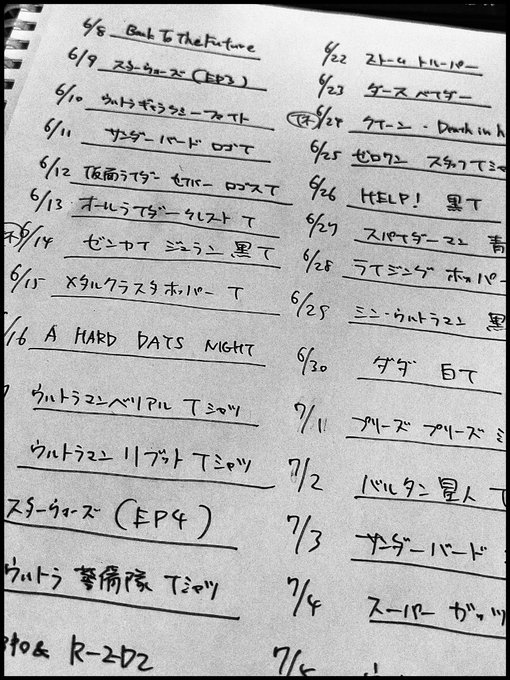 6/8 Back To The Future
6/9 スターウォーズ (EP3)
6/10 ウルトラギャラクシーファイト
6/11 サンダーバード ロゴT
6/12 仮面ライダー セイバー ロゴスT
6/13 オールライダー クレスト T
6/14 ゼンカイ ジュラン 黒T
6/15 メタルクラスタホッパー T
/16 A HARD DAYS NIGHT
ウルトラマンベリアル Tシャツ
ウルトラマン リブット Tシャツ
スターウォーズ (EP4)
ウルトラ 警備隊 Tシャツ
& R-2D2
6/22 ストーム トルーパー
6/23 ダース ベイダー
6/24 クイーン・Death in
6/25 ゼロワン スタッフTシャ
6/26 HELP! 黒T
6/27 スパイダーマン 青
6/28 ライジング ホッパー
6/29 シン・ウルトラマン 黒
6/30 ダダ 白T
7/1 プリーズ プリーズ ミ
7/2 バルタン星人 T
7/3 サンダーバード
7/4 スーパー ガッツ